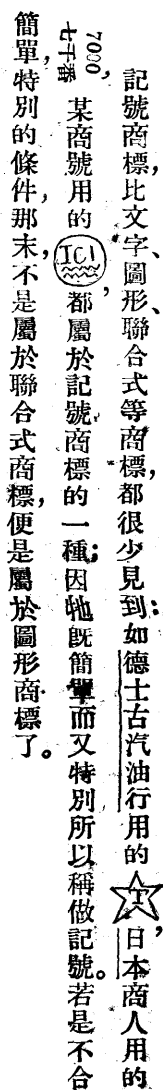 記號商標，比文字、圖形、聯合式等商標，都很少見到：如德士古汽油行用的T，日本商人用的
7000七千番，某商號用的ICI，都屬於記號商標的一種；因牠旣簡單而又特別所以稱做記號。若是不合
簡單，特別的條件，那末，不是屬於聯合式商標，便是屬於圖形商標了。